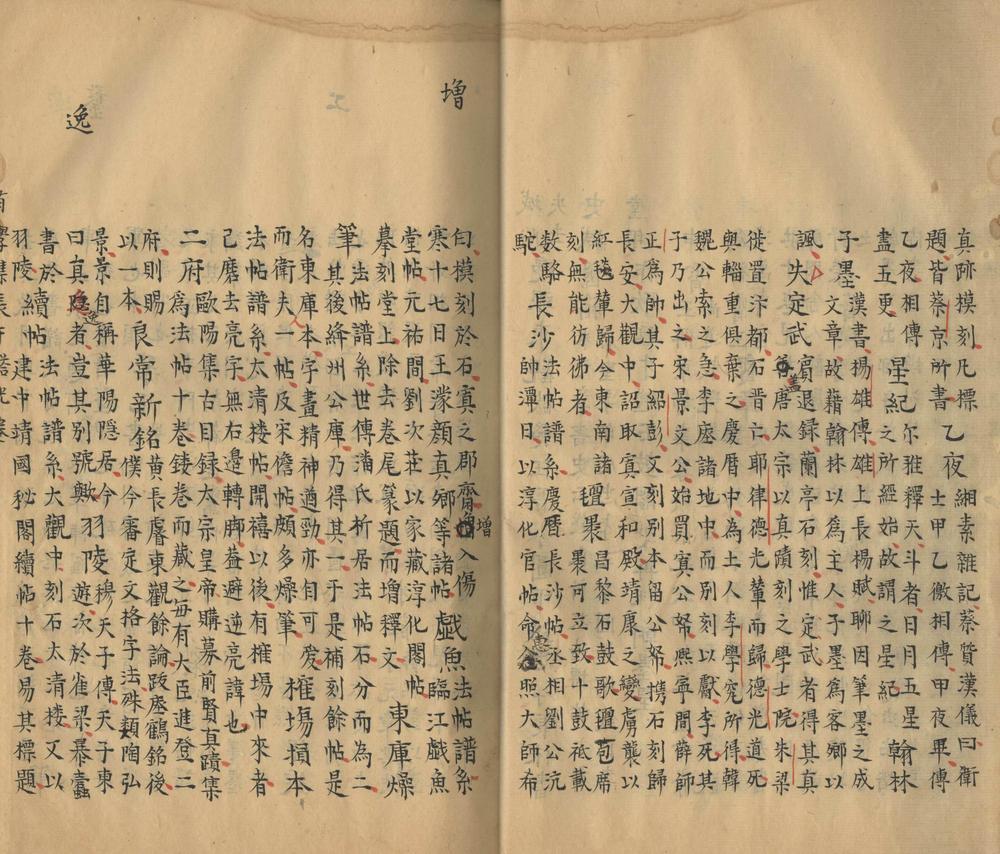 真跡模刻凡標
題皆蔡京所書 乙夜 緗素雜記蔡質漢儀曰衛
士甲乙徼相傳甲夜畢傳
乙夜相傳
盡五更 星紀 尔雅釋天斗者日月五星
之所經始故謂之星紀 翰林
子墨 漢書楊雄傳雄上長楊賦聊因筆墨之成
文章故藉翰林以為主人子墨為客卿以
諷 失定武 賔退録蘭亭石刻惟定武者得其真
盖唐太宗以真蹟刻之學士院朱梁
徙置汴都石晋亡耶律德光輦而歸德光道死
與輜重俱棄之慶暦中為土人李學究所得韓
魏公索之急李瘞諸地中而别刻以獻李死其
子乃出之宋景文公始買寘公帑熈寧間薛師
正為帥其子紹彭又刻别本留公帑携石刻歸
長安大觀中詔取寘宣和殿靖康之變虜襲以
紅輦歸今東南諸 氊褁 昌黎石鼓歌氊苞席
褁可立致十鼓祇載
刻無能彷彿者
數駱 長沙 法帖譜系慶暦長沙帖丞相劉公沆
帥潭日以淳化官帖命 照大師布
駝
白模刻於石寘之郡齋增入傷 戯魚 法帖譜系
臨江戯魚
寒十七日王濛顔真卿等諸帖
堂帖元祐間劉次荘以家藏淳化閣帖
摹刻堂上除去卷尾篆題而增釋文 東庫 燥
筆 法帖譜系世傳潘氏析居法帖石分而為二
其後絳州公庫乃得其一于是補刻餘帖是
名東庫本字畫精神遒勁亦自可 𤼵 榷塲 損本
而衛夫人一帖及宋儋帖頗多燥筆
法帖譜系太清楼帖開禧以後有榷塲中來者
己磨去亮字無右邉轉脚葢避逆亮諱也
二府 歐陽集古目録太宗皇帝購募前賢真蹟集
為法帖十卷鏤卷而藏之每有大臣進登二
府則賜 良常新銘 黄長睿東觀餘論跋瘞鶴銘後
以一本 僕今審定文格字法殊類陶弘
景景自稱華陽隱居今
曰真逸者豈其别號歟 羽陵 穆天子傳天子東
遊次於雀梁㬥蠹
書於
羽陵 續帖 法帖譜系大觀中刻石太清楼又以
建中靖國秘閣續帖十卷易其標題
增
逸